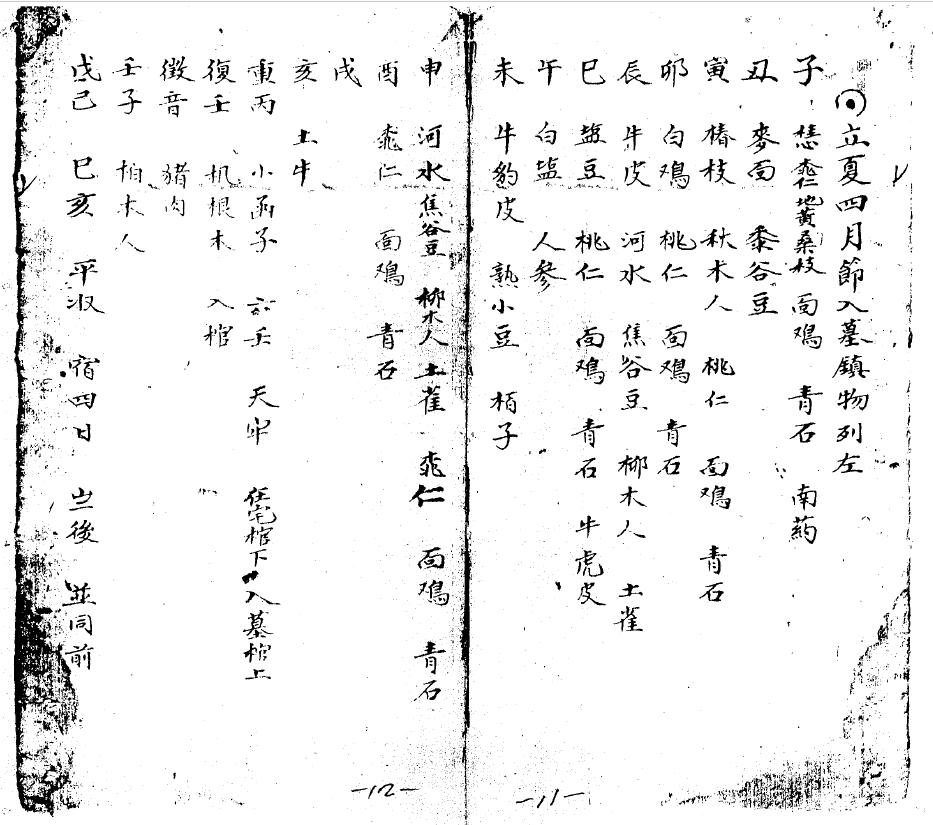 立夏四月節入墓鎮物列左
子 桃仁 地黃 桑枝 面鴆 青石 南药
丑 麥面 黍谷豆
寅 椿枝 秋木人 桃仁 面鴆 青石
卯 白鴆 桃仁 面鴆 青石
辰 牛皮 河水 焦谷豆 柳木人 土雀
巳 盐豆 桃仁 面鴆 青石 牛虎皮
午 白盐 人參
未 牛豹皮 熟小豆 栢子
申 河水 焦谷豆 柳木人 土雀 桃仁 面鴆 青石
酉 桃仁 面鴆 青石
戌
亥 土牛
重丙 小函子 六壬 天牢 住宅棺下 入墓棺上
復壬 机根木 入棺
徵音 猪肉
壬子 柏木人
戊己 巳亥 平收 宿四日 後 並同前
-12-
-11-